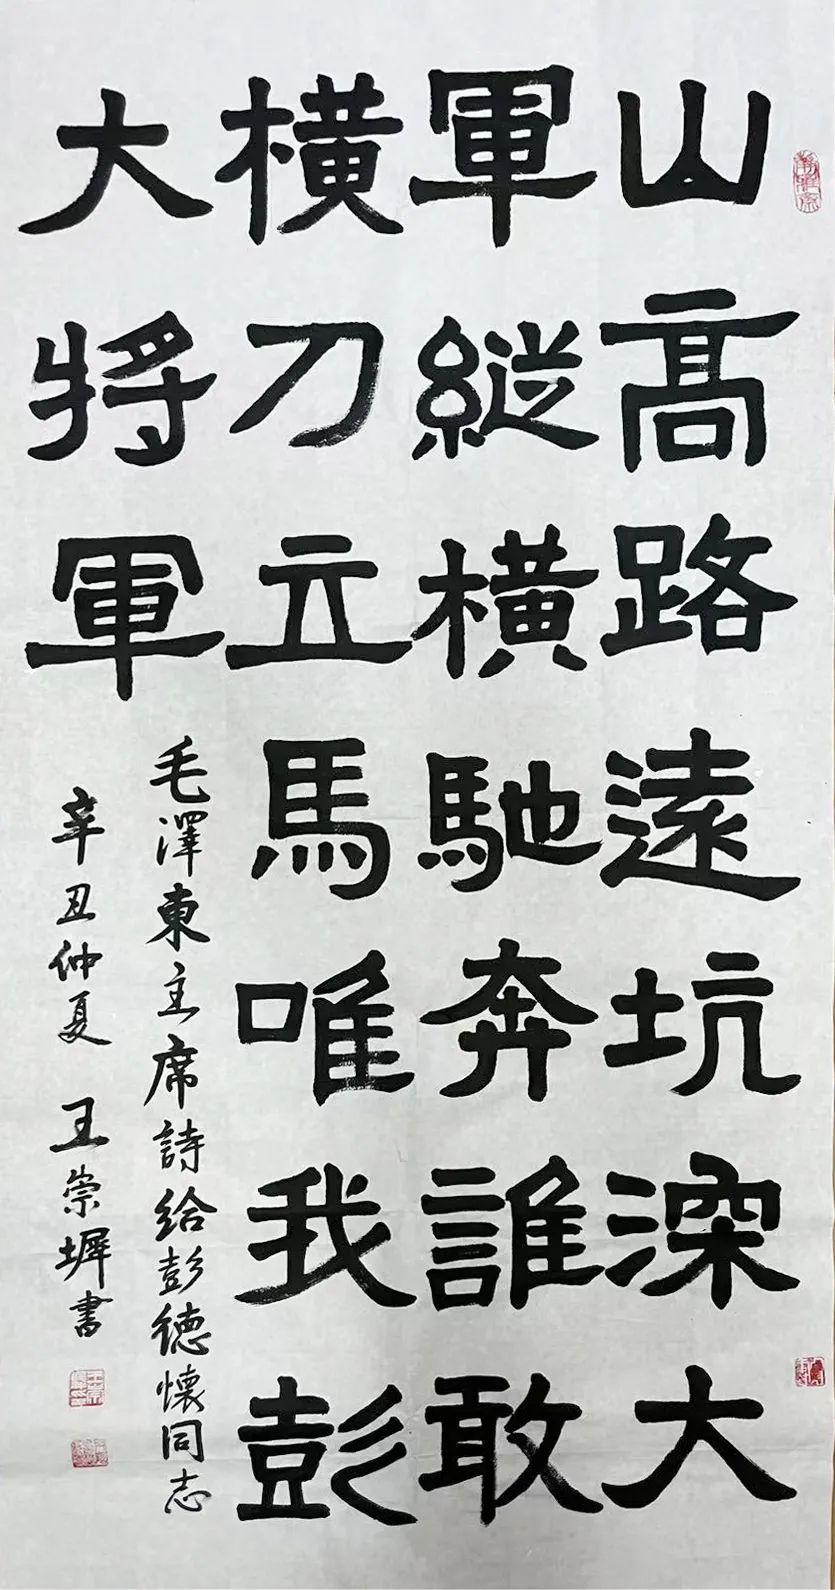 山高路遠坑深大
軍縱横馳奔誰敢
横刀立馬唯我彭
大將軍
毛澤東主席詩給彭德懷同志
辛丑仲夏 王崇墀書